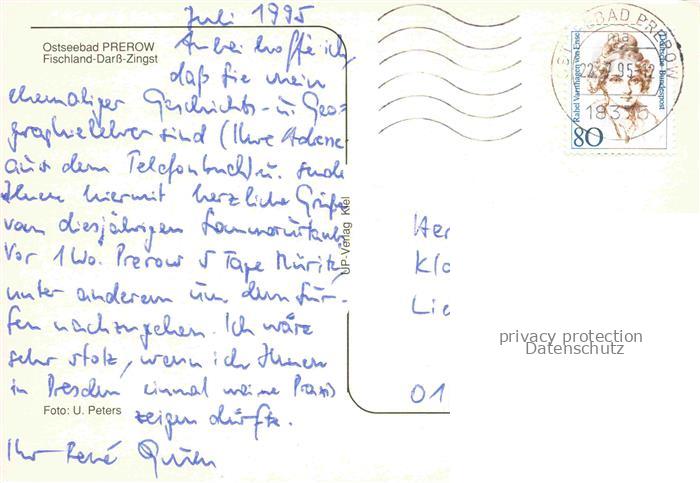 Juli 1995
Ostseebad PREROW
Fischland-Darß-Zingst
Anbei hoffe ich,
daß Sie mein
ehemaliger Geschichts- u. Geo-
graphielehrer sind (Ihre Adresse
aus dem Telefonbuch) u. sende
Ihnen hiermit herzliche Grüße
vom diesjährigen Sommerurlaub.
Vor 1 Wo. Prerow 5 Tage Müritz,
unter anderem um dem Sur-
fen nachzugehen. Ich wäre
sehr stolz, wenn ich Ihnen
in Dresden einmal meine Praxis
zeigen dürfte.
Foto: U. Peters
Ihr René
UP-Verlag Kiel
OSTSEEBAD PREROW
ma
22.7.95-12
18375
Rahel Varnhagen von Ense
Deutsche Bundespost
80
Her
Klo
Lie
01
privacy protection
Datenschutz